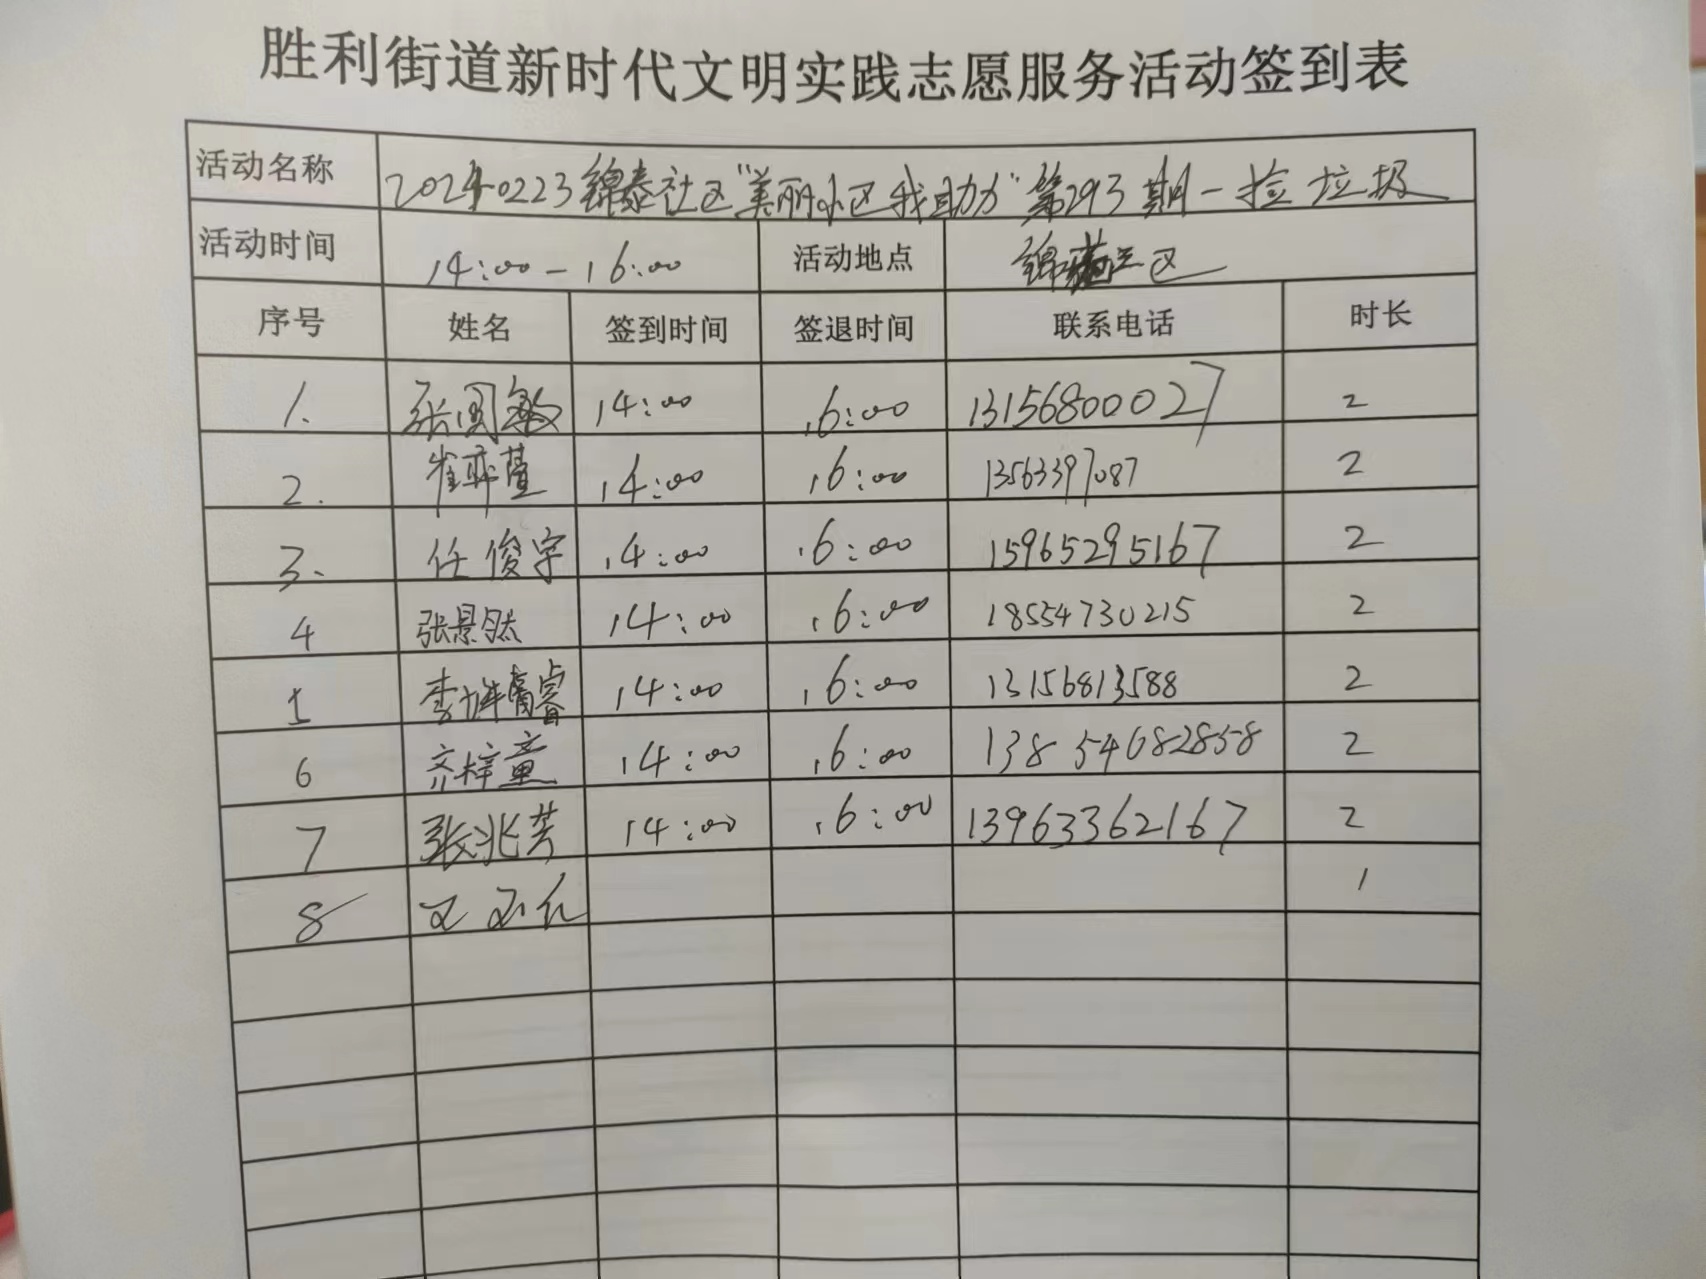 胜利街道新时代文明实践志愿服务活动签到表
活动名称 20240223锦泰社区"美丽小区我助力"第293期-捡垃圾
活动时间 14:00-16:00 活动地点 锦 三区
序号 姓名 签到时间 签退时间 联系电话 时长
1. 张国敏 14:00 16:00 13156800027 2
2. 崔 萱 14:00 16:00 13563397087 2
3. 任俊宇 14:00 16:00 15965295167 2
4 张景然 14:00 16:00 18554730215 2
5 李 睿 14:00 16:00 13156813588 2
6 齐梓童 14:00 16:00 13854682858 2
7 张兆芳 14:00 16:00 13963362167 2
8 1